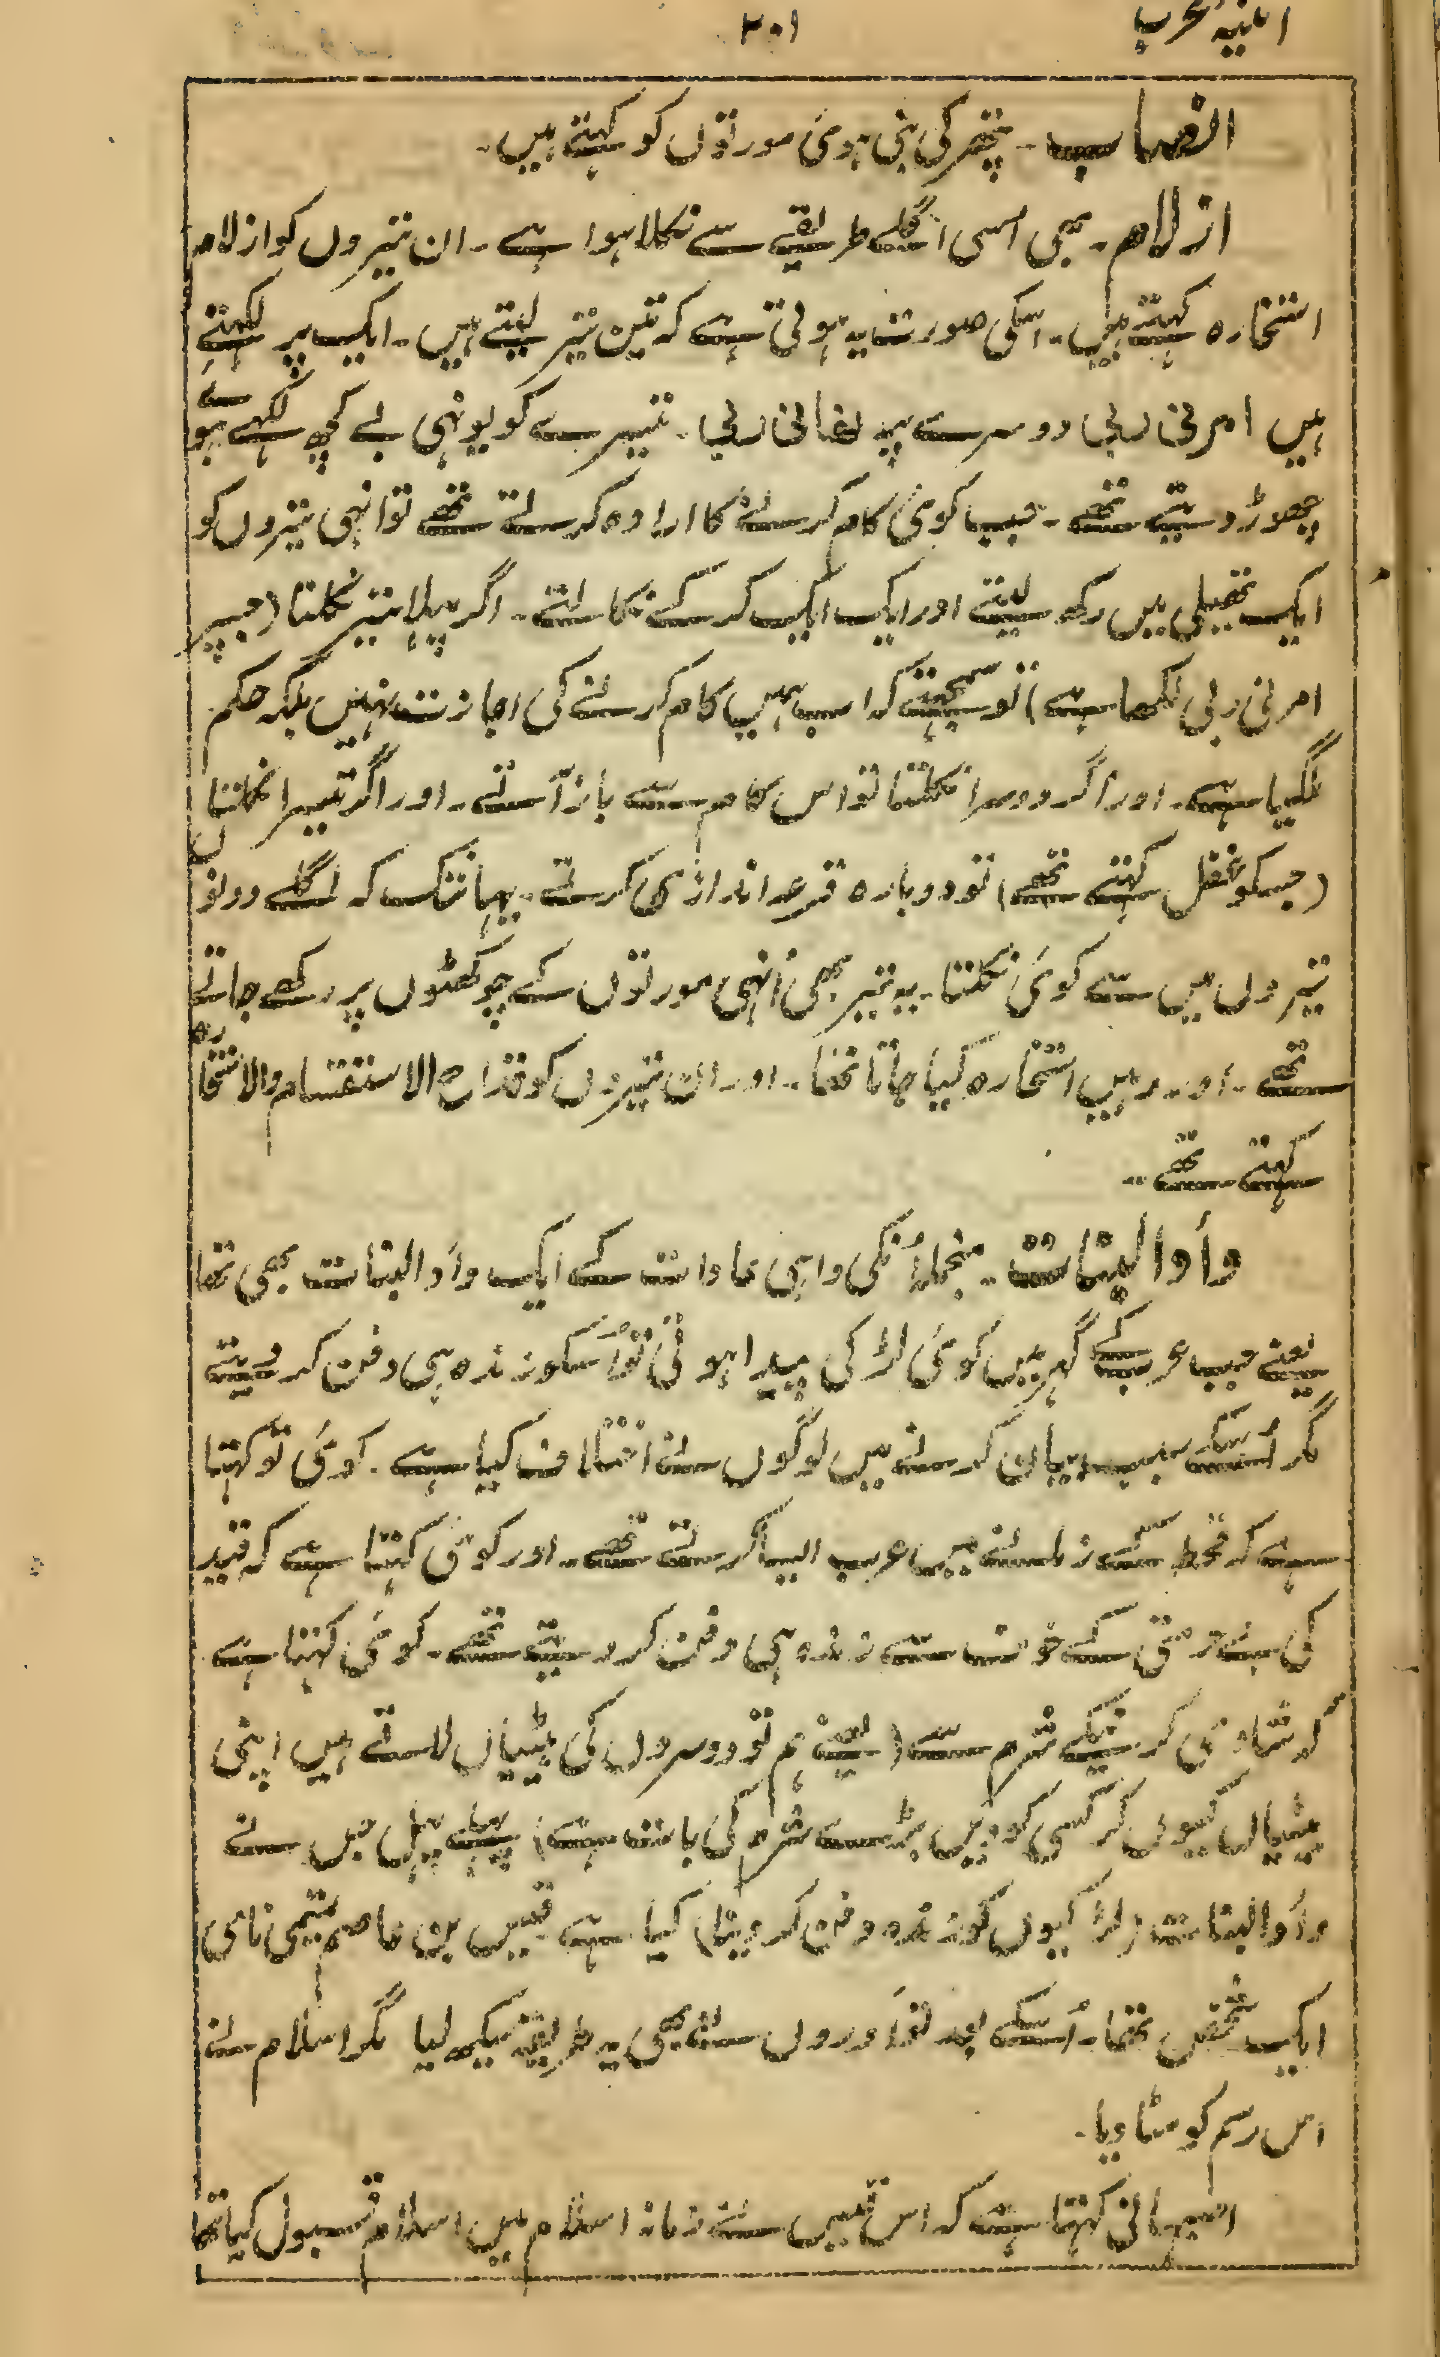 ائینہ عرب
۲۰۱
انصاب ۔ پتھر کی بنی ہوئی مورتوں کو کہتے ہیں۔
ازلام۔ بھی اُسی اگلے طریقے سے نکلا ہوا ہے۔ ان تیروں کو ازلام
استخارہ کہتے ہیں۔ اسکی صورت یہ ہوتی ہے کہ تین تیر لیتے ہیں۔ ایک پر لکہتے
ہیں امرنی ربی دوسرے پہ نہانی ربی۔ تیسرے کو یونہی بے کچھ لکہے ہوئے
چھوڑ دیتے تھے۔ جب کوئی کام کرنے کا ارادہ کرتے تھے تو انہی تیروں کو
ایک تھیلی میں رکھ لیتے اور ایک ایک کرکے نکالتے۔ اگر پہلا تیر نکلتا (جسپر
امرنی ربی لکھا ہے) تو سمجہتے کہ اب ہمیں کام کرنے کی اجازت نہیں بلکہ حکم
ملگیا ہے۔ اور اگر دوسرا نکلتا تو اس کام سے باز آتے۔ اور اگر تیسرا نکلتا
(جسکو غفل کہتے تھے) تو دوبارہ قرعہ اندازی کرتے۔ یہانتک کہ اگلے دونوں
تیروں میں سے کوئی نکلتا۔ یہ تیر بھی اُنہی مورتوں کے چوکھٹوں پر رکھے جاتے
تھے۔ اور وہیں استخارہ کیا جاتا تھا۔ اور ان تیروں کو قداح الاستقسام والاستخارہ
کہتے تھے۔
وأدالبنات۔ منجملہ اُنکی واہی عادات کے ایک وأدالبنات بھی تھا
یعنے جب عرب کے گہر میں کوئی لڑکی پیدا ہوتی تو اُسکو زندہ ہی دفن کر دیتے
مگر اُسکے سبب بیان کرنے میں لوگوں نے اختلاف کیا ہے۔ کوئی تو کہتا
ہے کہ قحط کے زمانے میں عرب ایسا کرتے تھے۔ اور کوئی کہتا ہے کہ قید
کی بے حرمتی کے خوف سے زندہ ہی دفن کر دیتے تھے۔ کوئی کہتا ہے
کہ شادی کرنیکے شرم سے (یعنے ہم تو دوسروں کی بیٹیاں لاتے ہیں اپنی
بیٹیاں کیوں کر کسی کو دیں بڑے شرم کی بات ہے) پہلے پہل جس نے
وأدالبنات (لڑکیوں کو زندہ دفن کر دینا) کیا ہے قیس بن عاصم تمیمی نامی
ایک شخص تھا۔ اُسکے بعد تو اَوروں نے بھی یہ طریقہ سیکھ لیا مگر اسلام نے
اس رسم کو مٹا دیا۔
اصبہانی کہتا ہے کہ اس قیس نے زمانہ اسلام میں اسلام قبول کیا تھا